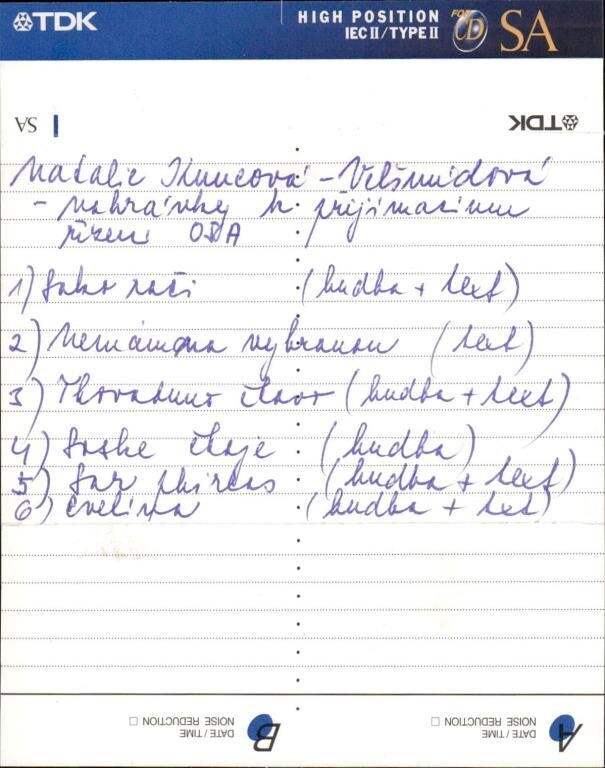 TDK
HIGH POSITION
IEC II / TYPE II
FOR CD
SA
SA
TDK
Natalie Kuncová - Velšmídová
- nahrávky k přijímacímu
řízení OSA
1) Sako rači (hudba + text)
2) Nemám na vybranou (text)
3) čhavo (hudba + text)
4) Soske čhaje (hudba)
5) Sar phirlas (hudba + text)
6) Evelina (hudba + text)
B
DATE / TIME
NOISE REDUCTION
A
DATE / TIME
NOISE REDUCTION